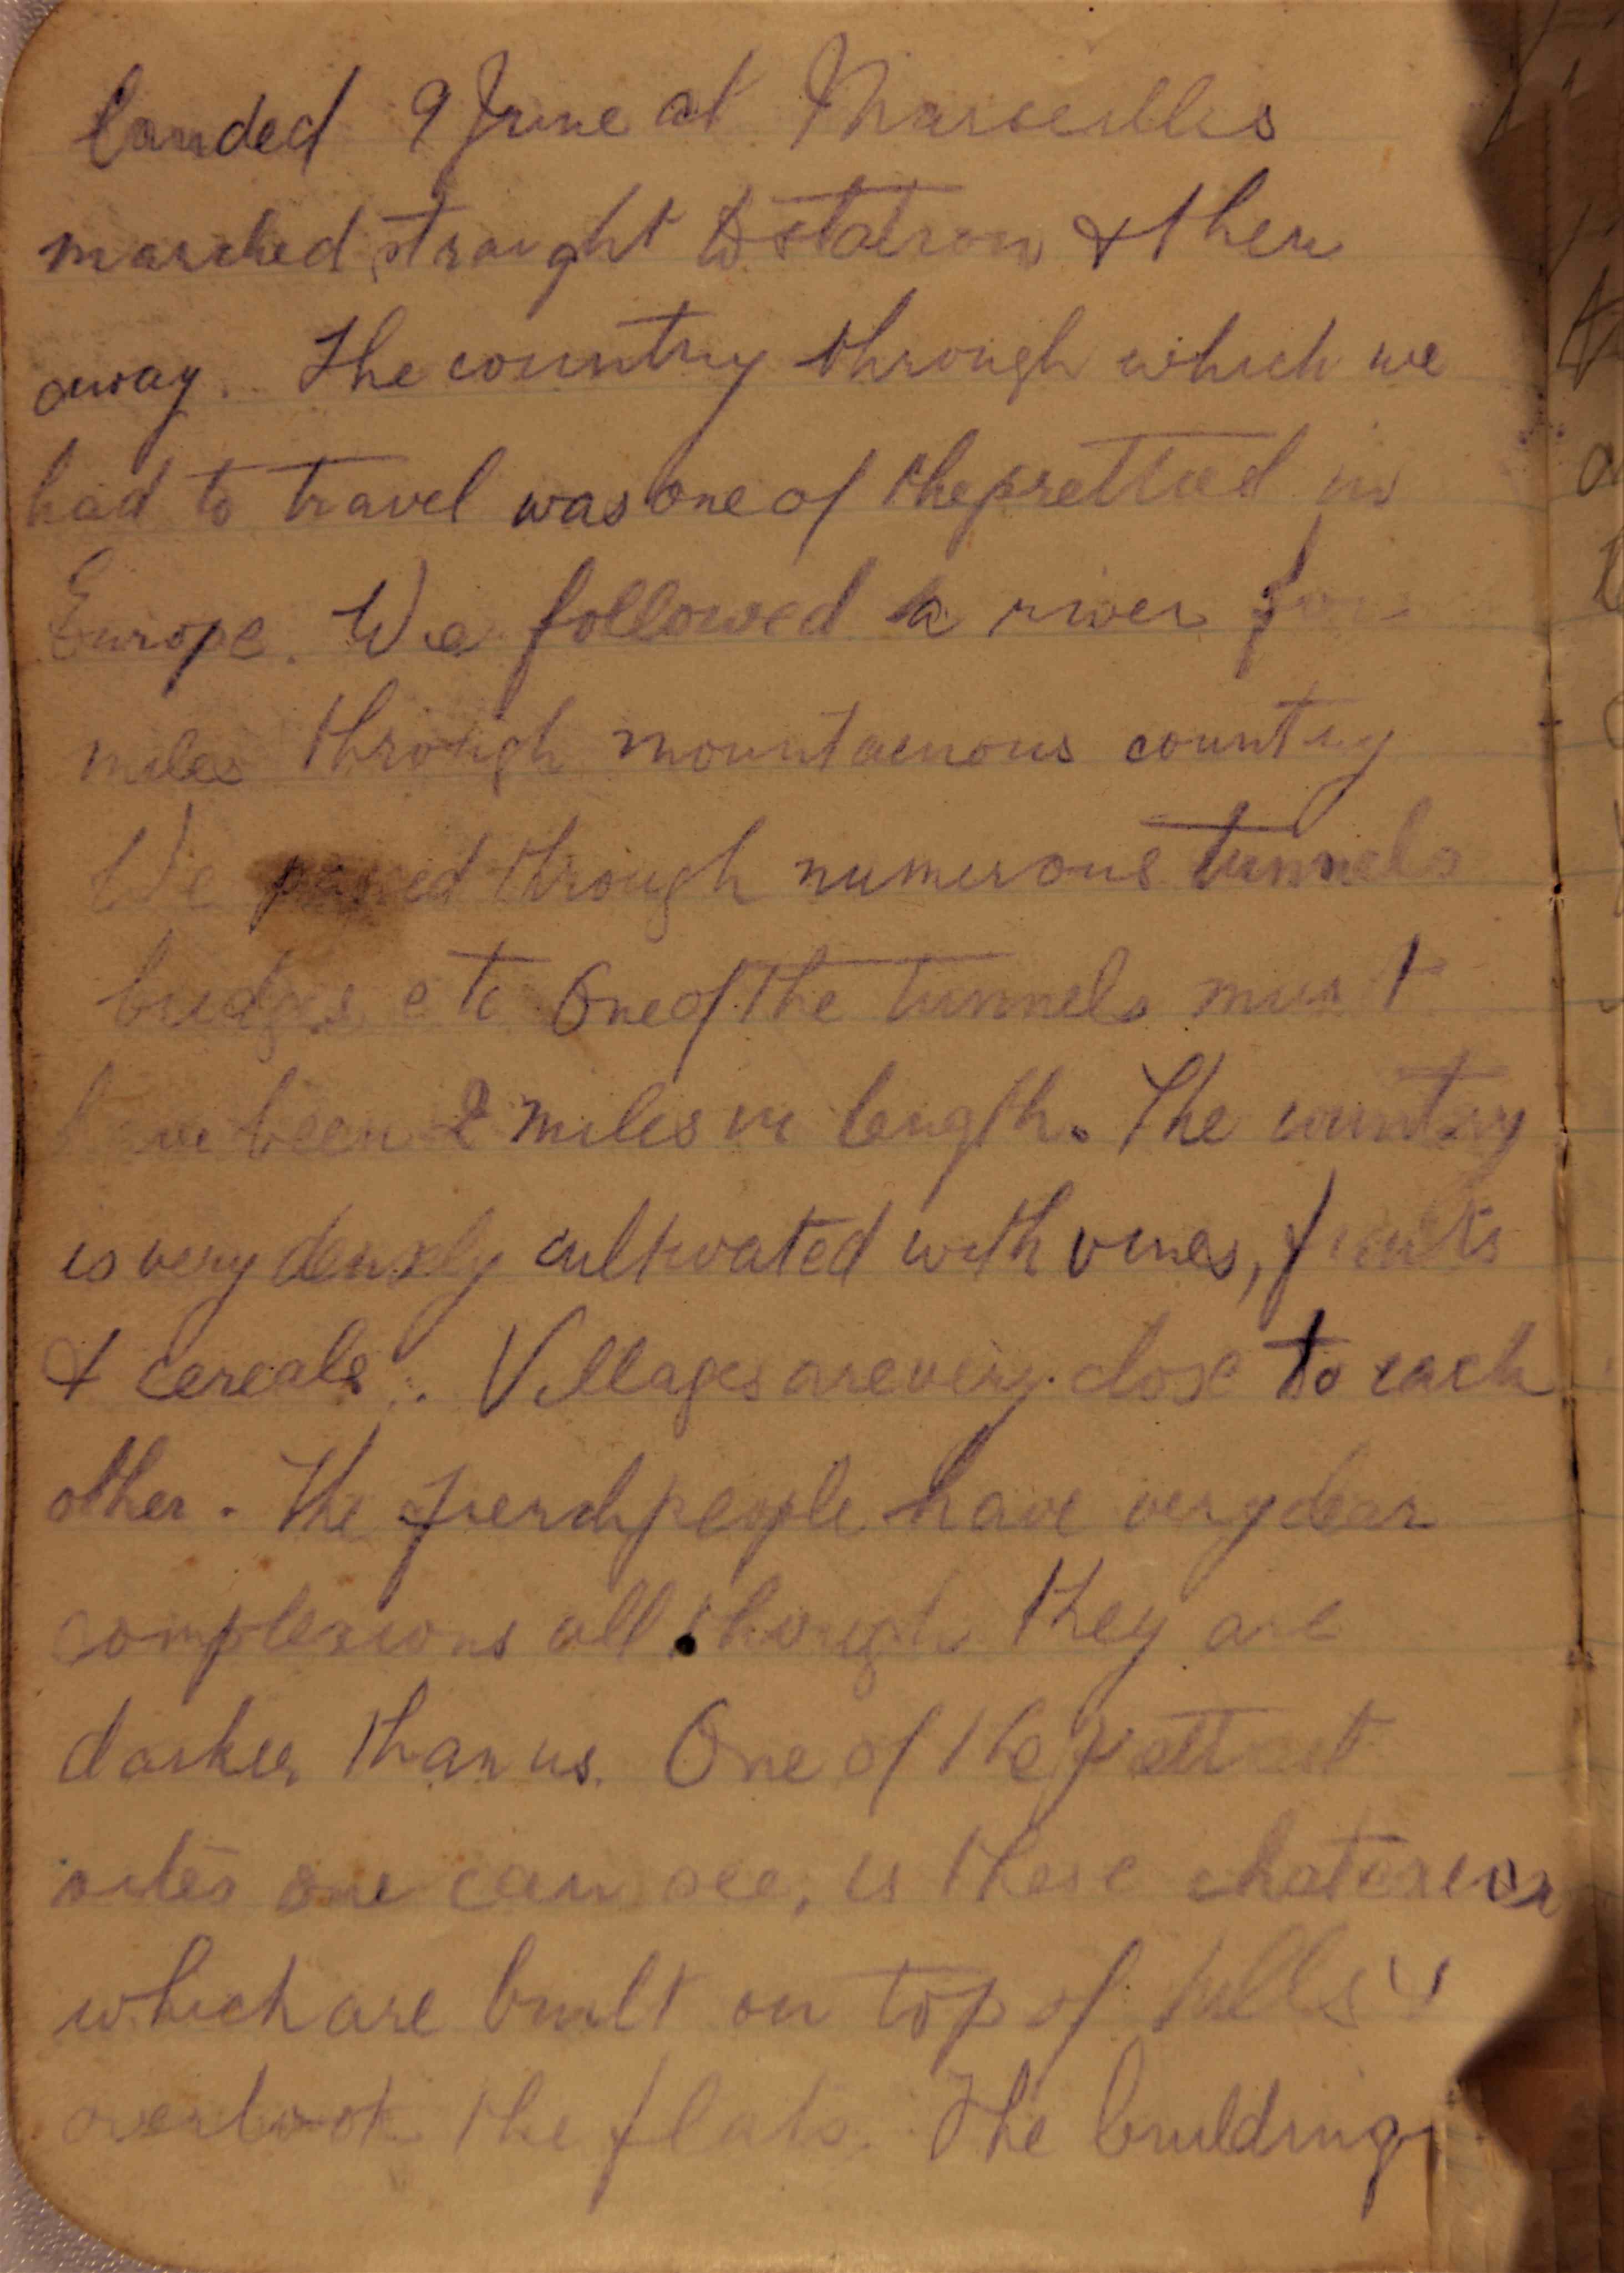 landed 9 June at Marseilles
marched straight to station & then
away. The country through which we
had to travel was one of the prettied in
Europe. We followed a river for
miles through mountaenous country
We passed through numerous tunnels
bridges etc One of the tunnels must
have been 2 miles in length. The country
is very densely cultivated with vines, fruits
& cereals. Villages are very close to each
other. The french people have very clear
complexions allthough they are
darker than us. One of the prettiest
sites one can see, is these
which are built on top of hills &
overlook the flats. The building